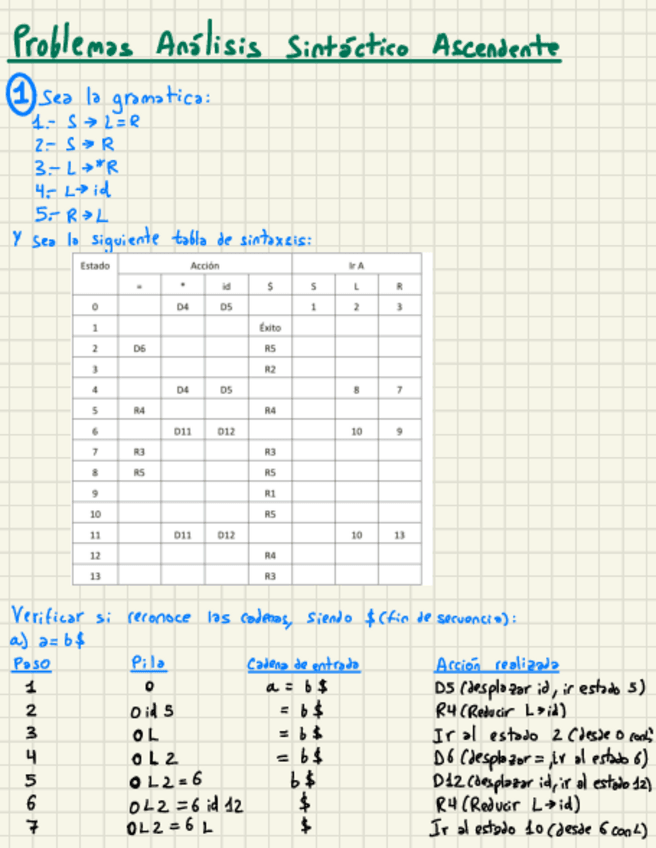 Problemas Análisis Sintáctico Ascendente
1 Sea la gramatica:
1.- S → L=R
2.- S → R
3.- L → *R
4.- L → id
5.- R → L
Y sea la siguiente tabla de sintaxsis:
Estado Acción Ir A
= * id $ S L R
0 D4 D5 1 2 3
1 Éxito
2 D6 R5
3 R2
4 D4 D5 8 7
5 R4 R4
6 D11 D12 10 9
7 R3 R3
8 R5 R5
9 R1
10 R5
11 D11 D12 10 13
12 R4
13 R3
Verificar si reconoce las cadenas, siendo $ (fin de secuencia):
a) a=b$
Paso Pila Cadena de entrada Acción realizada
1 0 a = b $ D5 (desplazar id, ir estado 5)
2 0 id 5 = b $ R4 (Reducir L→id)
3 0L = b $ Ir al estado 2 (desde 0 con L)
4 0 L 2 = b $ D6 (desplazar =, ir al estado 6)
5 0 L 2 = 6 b $ D12 (desplazar id, ir al estado 12)
6 0L2 = 6 id 12 $ R4 (Reducir L→id)
7 0L2 = 6 L $ Ir al estado 10 (desde 6 con L)